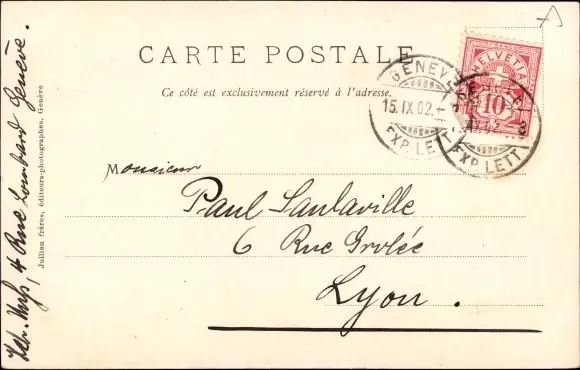 CARTE POSTALE
Ce côté est exclusivement réservé à l'adresse.
HELVETIA
10
GENEVE
15.IX.02.
EXP. LETT
EXP. LETT
Monsieur
Paul Santaville
6 Rue Grolée
Lyon.
4 Rue Lombard Genève.
Jullien frères, éditeurs-photographes, Genève